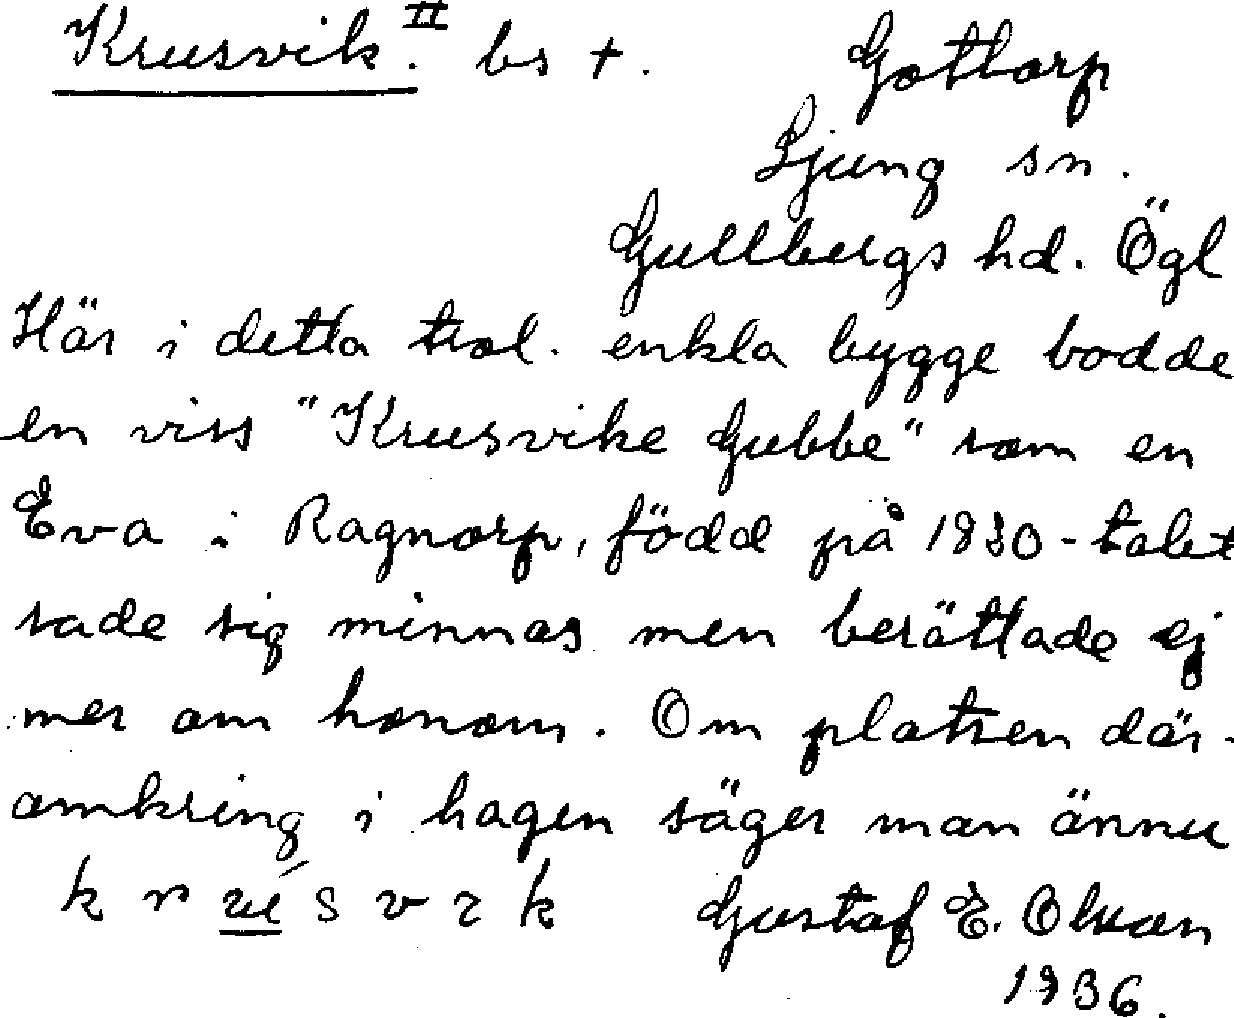 Krusvik. II bs +. Gottorp
Ljung sn.
Gullbergs hd. Ögl
Här i detta trol. enkla bygge bodde
en viss "Krusvike Gubbe" som en
Eva i Ragnorp, född på 1830-talet
sade sig minnas men berättade ej
mer om honom. Om platsen där-
omkring i hagen säger man ännu
k r ú s v ɩ k Gustaf E. Olson
1936.